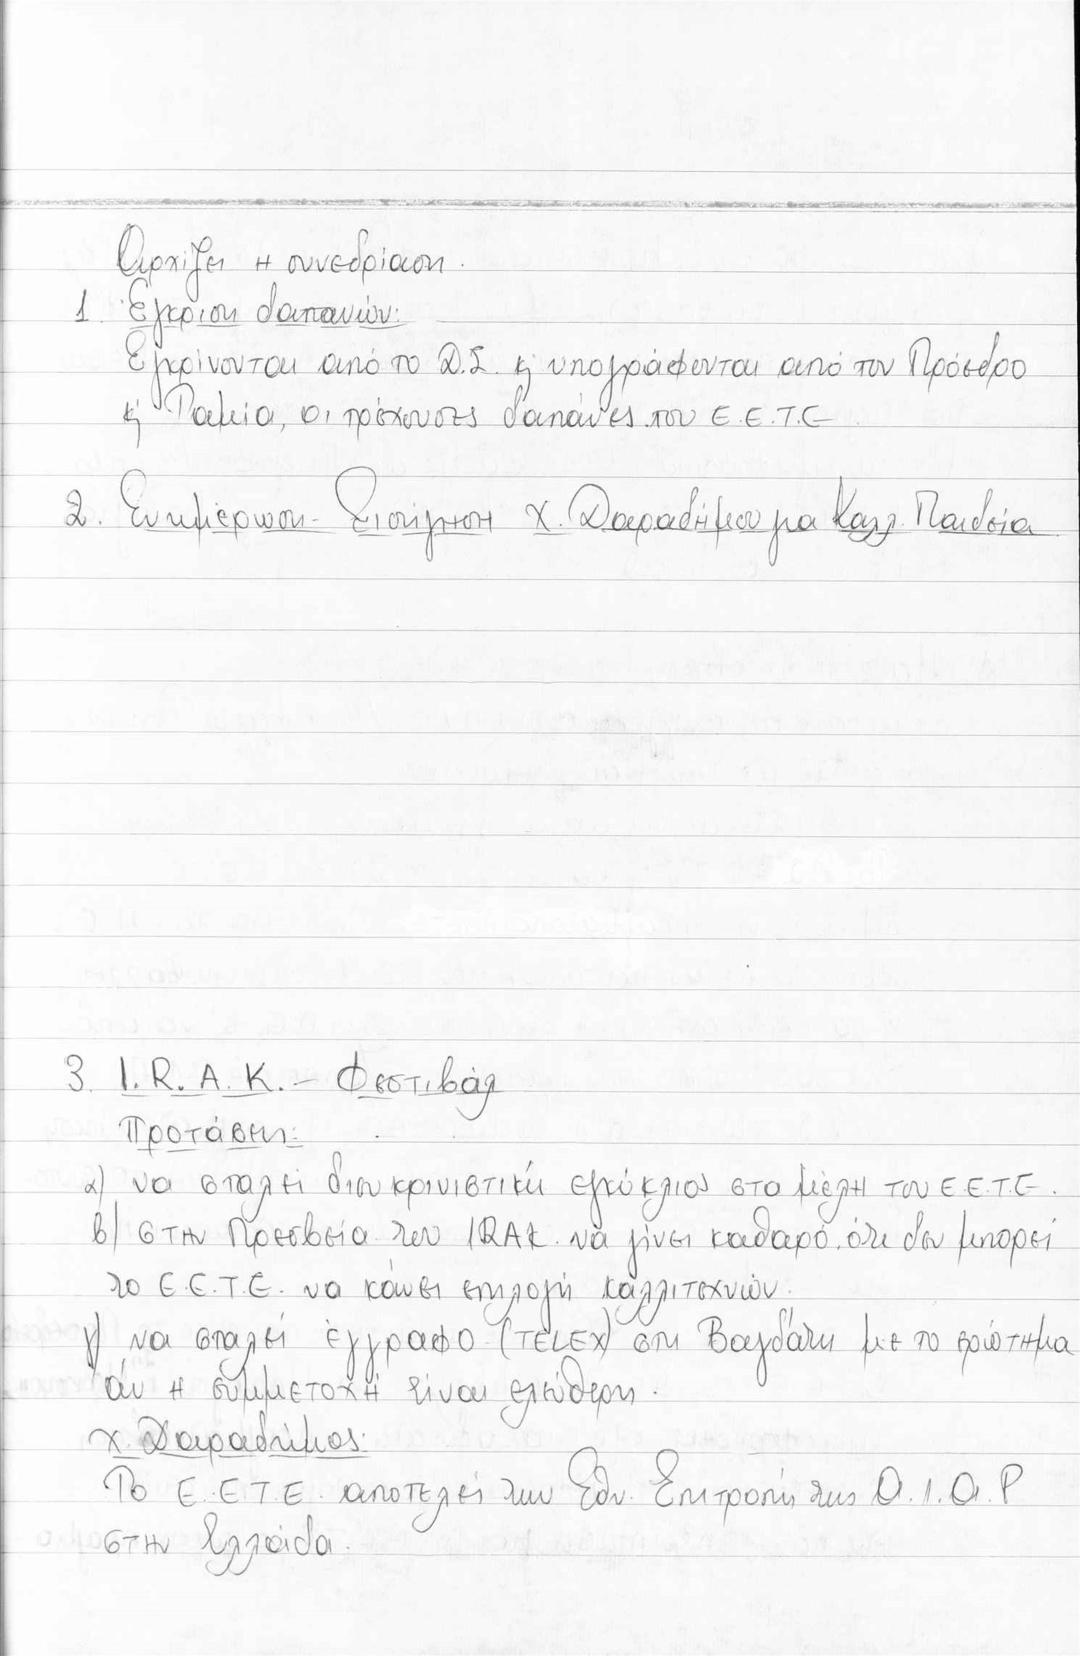 Αρχίζει η συνεδρίαση.
1. Έγκριση δαπανών:
Εγκρίνονται από το Δ.Σ. κ' υπογράφονται από τον Πρόεδρο
κ' Ταμία, οι τρέχουσες δαπάνες του Ε.Ε.Τ.Ε
2. Ενημέρωση - Εισήγηση Χ. Δαραδήμου για Καλλ. Παιδεία
3. I.R.A.K. - Φεστιβάλ
Προτάσεις:
α) να σταλεί διευκρινιστική εγκύκλιος στα μέλη του Ε.Ε.Τ.Ε.
β) στην Πρεσβεία του IRAK να γίνει καθαρό, ότι δεν μπορεί
το Ε.Ε.Τ.Ε. να κάνει επιλογή καλλιτεχνών.
γ) να σταλεί έγγραφο (TELEX) στη Βαγδάτη με το ερώτημα
άν η συμμετοχή είναι ελεύθερη.
Χ. Δαραδήμος:
Το Ε.Ε.Τ.Ε. αποτελεί την Εθν. Επιτροπή της Α.Ι.Α.Ρ
στην Ελλάδα.